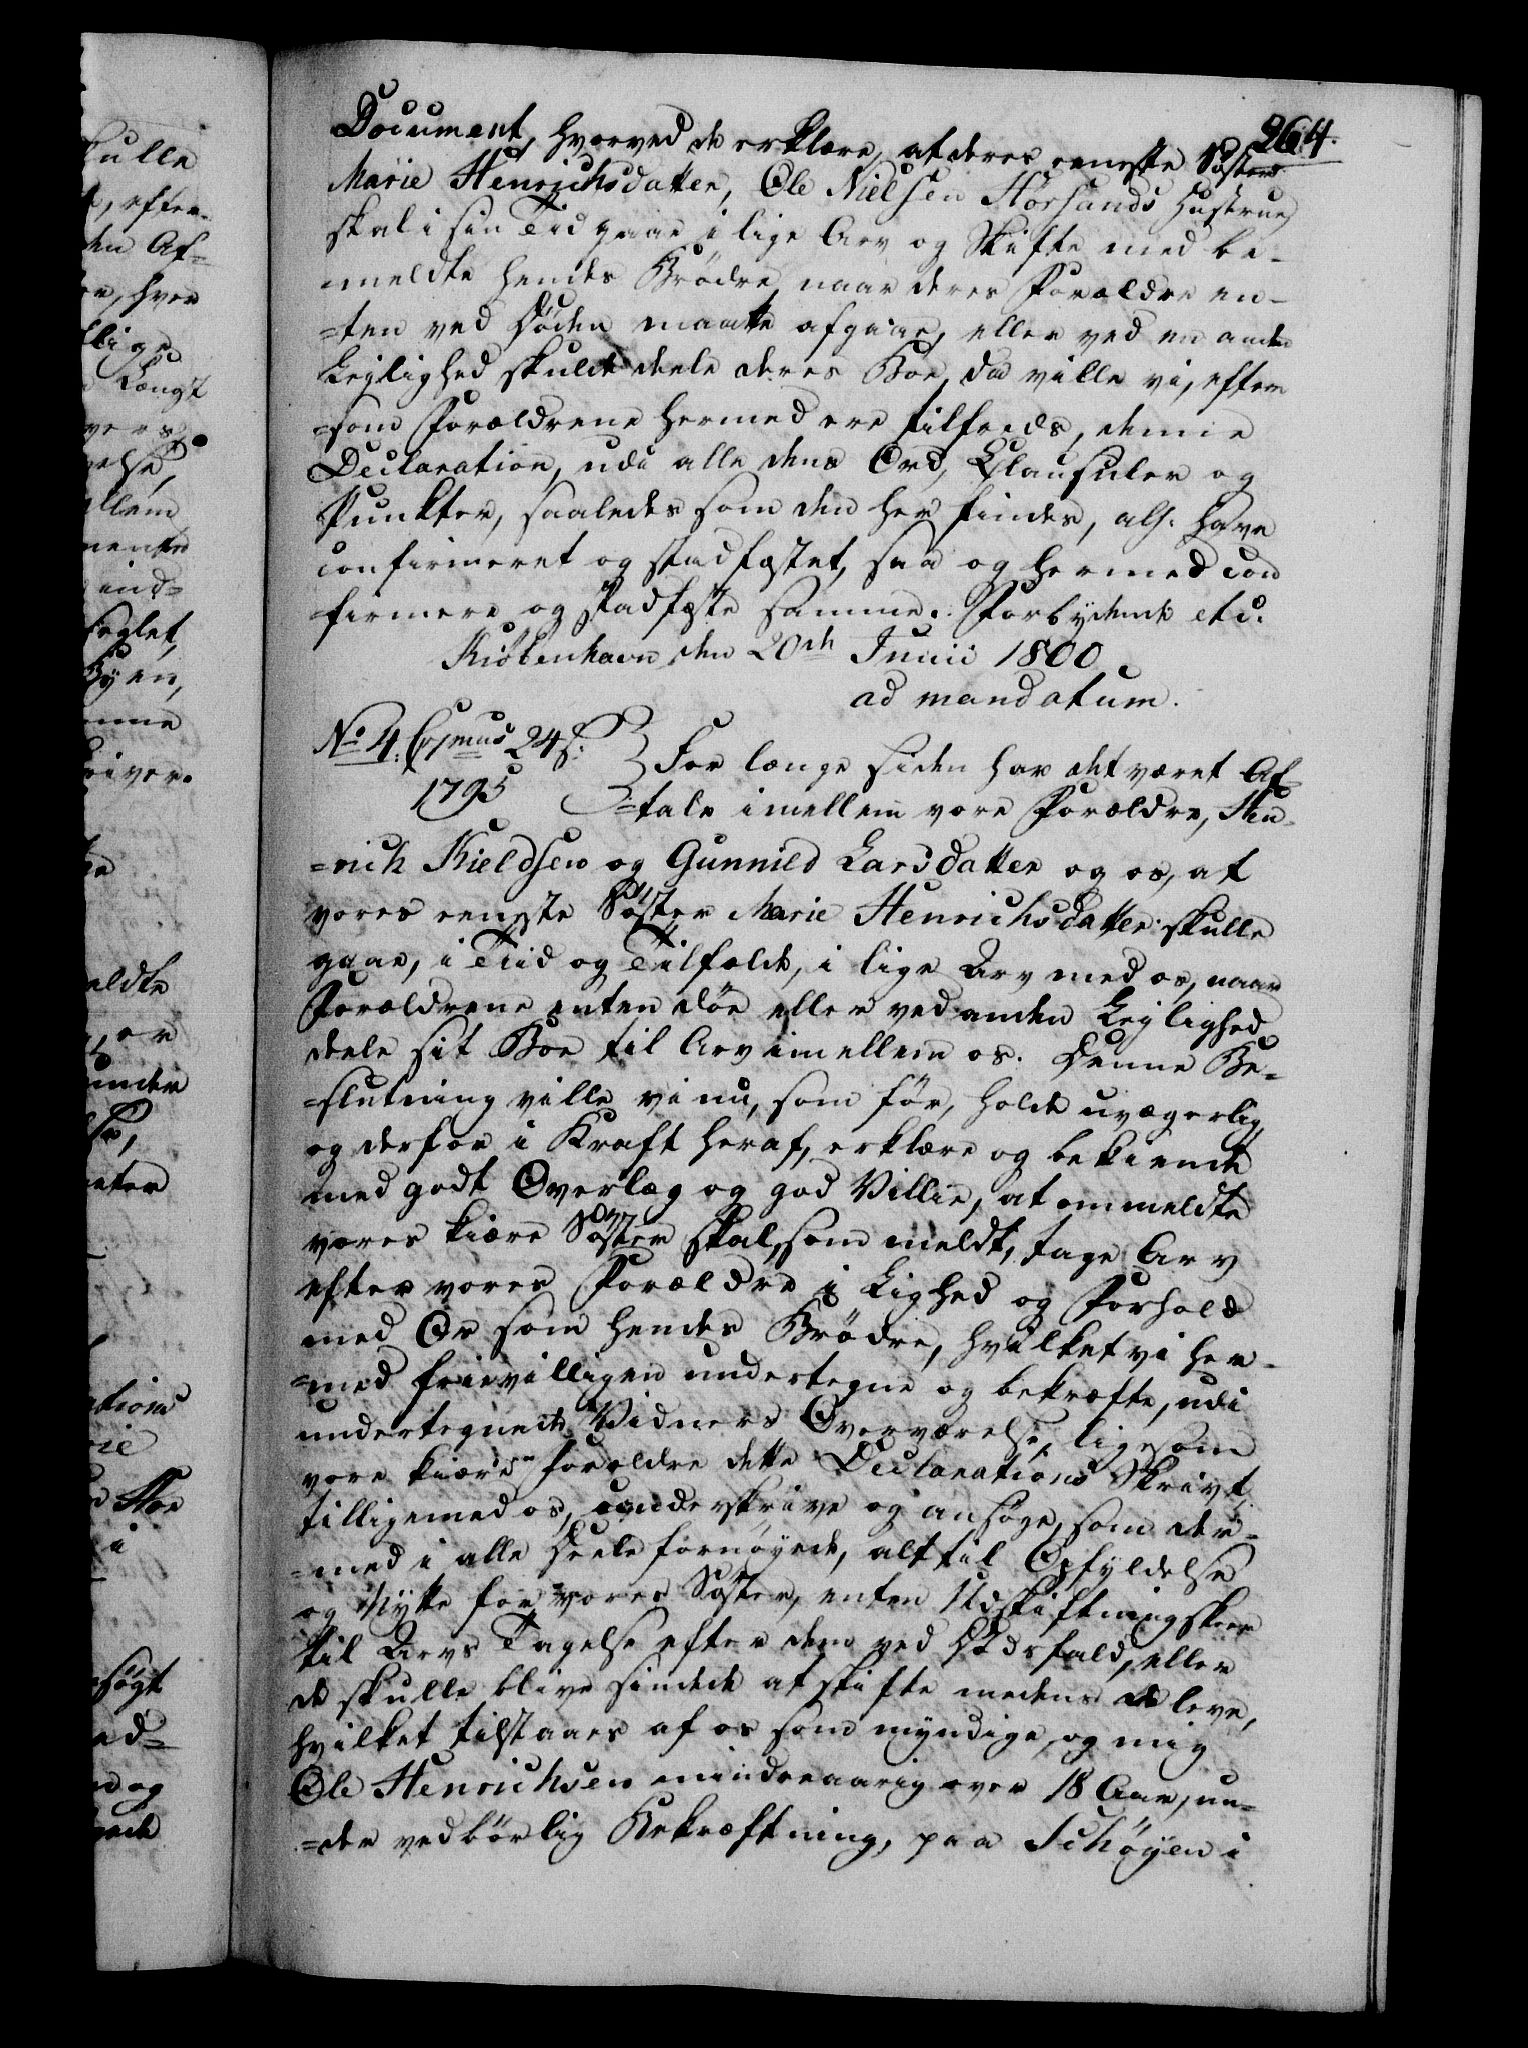 264.
Document, hvorved de erklære, at deres eeneste Søster
Marie Henrichsdatter, Ole Nielsen Horsands Hustrue,
skal i sin Tid gaae i lige Arv og Skifte med be-
-meldte hendes Brødre, naar deres Forældre en-
=ten ved Døden maatte afgaae, eller ved en anden
Leylighed skulde deele deres Boe, da ville vi, efter
=som Forældrene hermed ere tilfreds, denne
Declaration, udi alle dens Ord, Clausuler og
Punkter, saaledes som den her findes, alh. have
confirmeret og stadfæstet, saa og hermed con
firmere og stadfæste samme. Forbydende etc.
Kiøbenhavn, den 20de Junii 1800
ad mandatum.
No 4. Crmus 24 s.
1795
For længe siden har det været Af
=tale imellem vore Forældre, Hen-
=rich Kieldsen og Gunnild Larsdatter og os, at
vores eeneste Søster Marie Henrichsdatter skulle
gaae, i Tiid og Tilfælde, i lige Arv med os, naar
Forældrene enten døe eller ved anden Leylighed
deele sit Boe til Arv imellem os. Denne Be-
=slutning ville vi nu, som før, holde uvægerlig,
og derfor i Kraft heraf, erklære og bekiende
med godt Overlæg og god Villie, at ommeldte
vores kiære Søster skal, som meldt, tage Arv
efter vores Forældre i Lighed og Forhold
med Os som hendes Brødre, hvilket vi her-
=med frievilligen undertegne og bekræfte, udi
undertegnede Vidners Overværelse, ligesom
vore kiære Forældre dette Declarations Skrivt,
tilligemed os, underskrive og ansøge, som der-
=med i alle Deele fornøyede, alt til Opfyldelse
og Nytte for vores Søster, enten Udskiftning skeer
til Arvs Tagelse efter dem ved Dødsfald, eller
de skulle blive sindede at skifte medens de leve,
hvilket tilstaaes af os som myndige, og mig
Ole Henrichsen mindreaarig over 18 Aar, un-
=der vedbørlig Bekræftning, paa Schøyen i